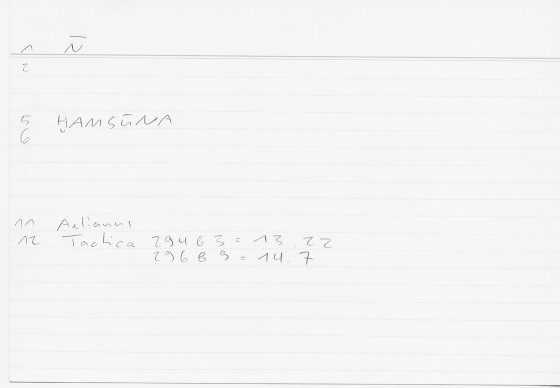 1 N̄
2
5 ḪAMSŪNA
6
11 Aelianus
12 Tactica 294 b 3 = 13.22
296 b 3 = 14.7